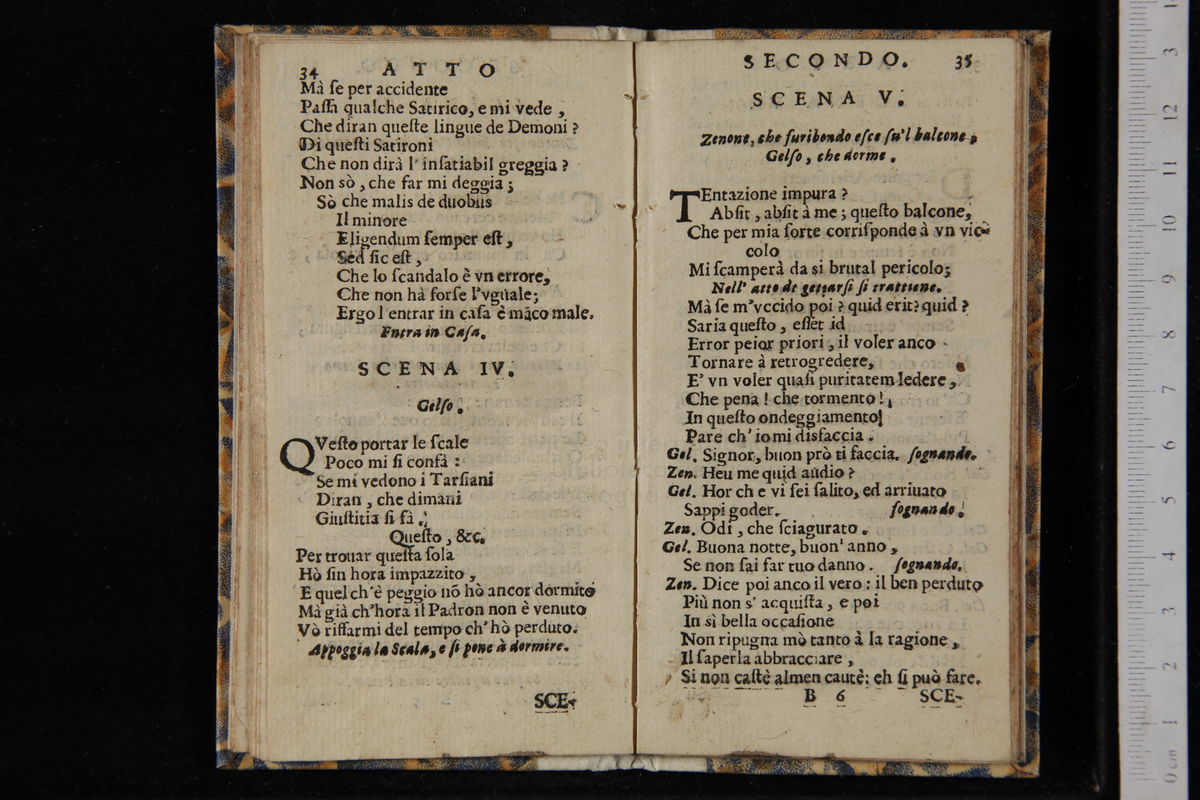 34 ATTO
Mà ſe per accidente
Paſſa qualche Satirico, e mi vede ,
Che diran queſte lingue de Demoni ?
Di queſti Satironi
Che non dirà l' inſatiabil greggia ?
Non sò , che far mi deggia ;
Sò che malis de duobus
Il minore
Eligendum ſemper eſt ,
Sed ſic eſt ,
Che lo ſcandalo è vn errore,
Che non hà forſe l'vguale;
Ergo l entrar in caſa è mãco male.
Entra in Caſa.
SCENA IV.
Gelſo.
QVeſto portar le ſcale
Poco mi ſi confà :
Se mi vedono i Tarſiani
Diran , che dimani
Giuſtitia ſi fà .
Queſto , &c.
Per trouar queſta ſola
Hò ſin hora impazzito ,
E quel ch'è peggio nõ hò ancor dormito
Mà già ch'hora il Padron non è venuto
Vò riffarmi del tempo ch'hò perduto.
Appoggia la Scala, e ſi pone à dormire.
SCE-
SECONDO. 35
SCENA V.
Zenone, che furibondo eſce ſu'l balcone,
Gelſo, che dorme.
TEntazione impura ?
Abſit , abſit à me ; queſto balcone,
Che per mia ſorte corriſponde à vn vic-
colo
Mi ſcamperà da si brutal pericolo;
Nell' atto de gettarſi ſi trattiene.
Mà ſe m'vccido poi ? quid erit? quid ?
Saria queſto , eſſet id
Error peior priori , il voler anco
Tornare à retrogredere,
E' vn voler quaſi puritatem ledere ,
Che pena ! che tormento !
In queſto ondeggiamento!
Pare ch' io mi disfaccia .
Gel. Signor, buon prò ti faccia. ſognando.
Zen. Heu me quid audio ?
Gel. Hor ch e vi ſei ſalito, ed arriuato
Sappi goder. ſognando.
Zen. Odi , che ſciagurato .
Gel. Buona notte, buon' anno ,
Se non fai far tuo danno . ſognando.
Zen. Dice poi anco il vero : il ben perduto
Più non s' acquiſta , e poi
In sì bella occaſione
Non ripugna mò tanto à la ragione ,
Il ſaperla abbracciare ,
Si non caſtè almen cautè: eh ſi può fare.
B 6 SCE-